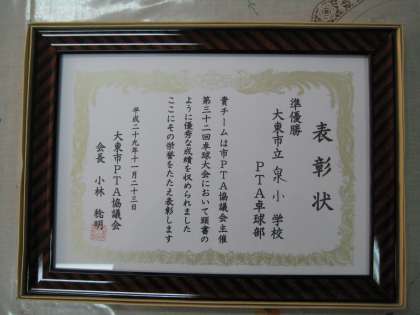 表彰状
準優勝
大東市立泉小学校
PTA卓球部
貴チームは市PTA協議会主催
第三十二回卓球大会において頭書の
ように優秀な成績を収められました
ここにその栄誉をたたえ表彰します
平成二十九年十一月二十三日
大東市PTA協議会
会長 小林 稔明